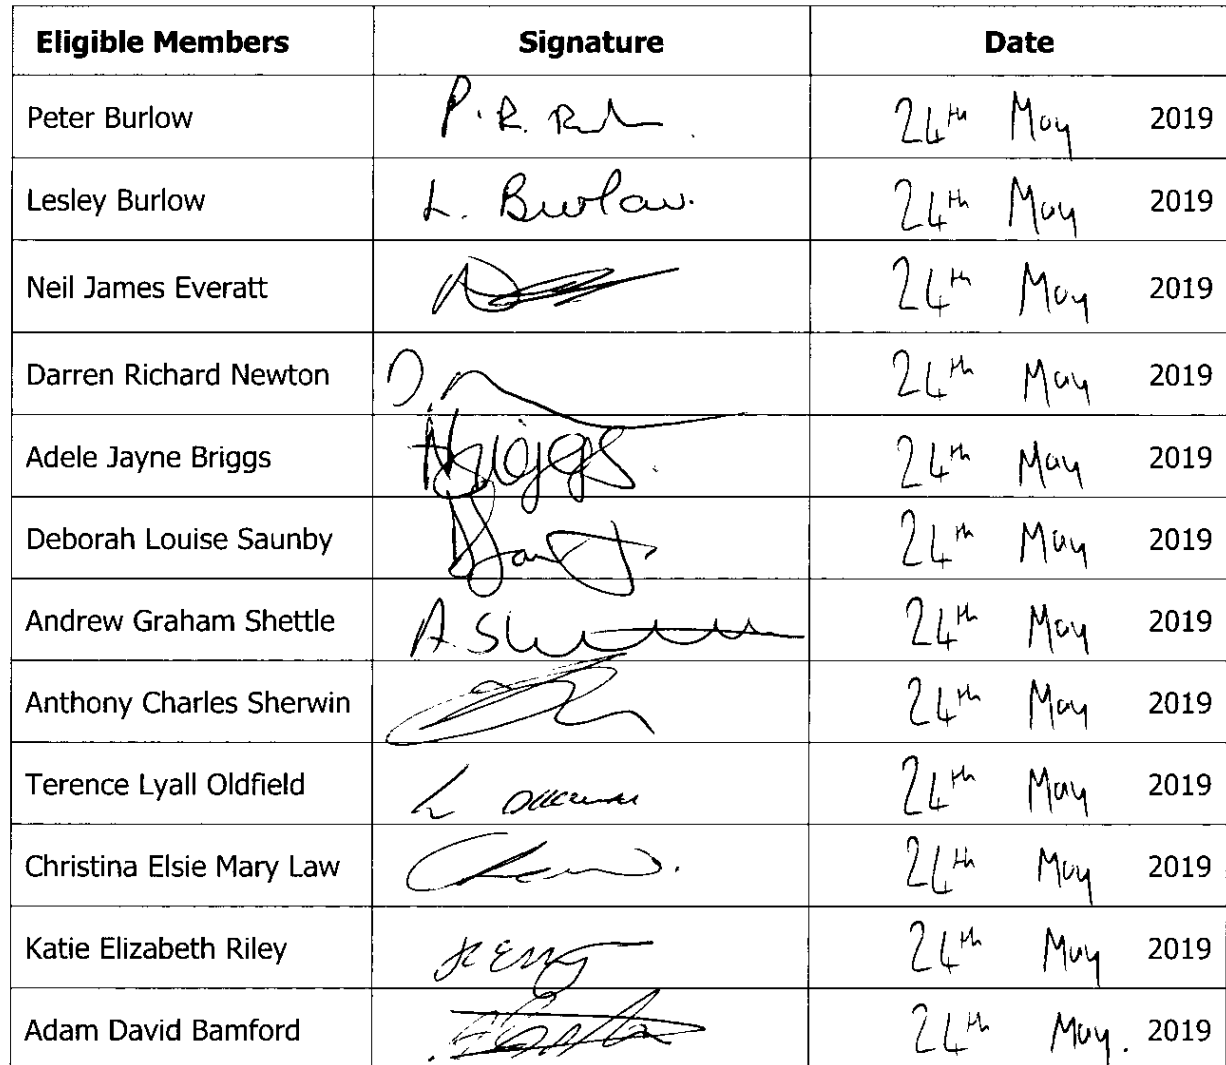 Eligible Members Signature Date
Peter Burlow P.R. 24th May 2019
Lesley Burlow L. Burlow. 24th May 2019
Neil James Everatt 24th May 2019
Darren Richard Newton D. 24th May 2019
Adele Jayne Briggs ABriggs. 24th May 2019
Deborah Louise Saunby 24th May 2019
Andrew Graham Shettle 24th May 2019
Anthony Charles Sherwin 24th May 2019
Terence Lyall Oldfield 24th May 2019
Christina Elsie Mary Law 24th May 2019
Katie Elizabeth Riley 24th May 2019
Adam David Bamford 24th May. 2019